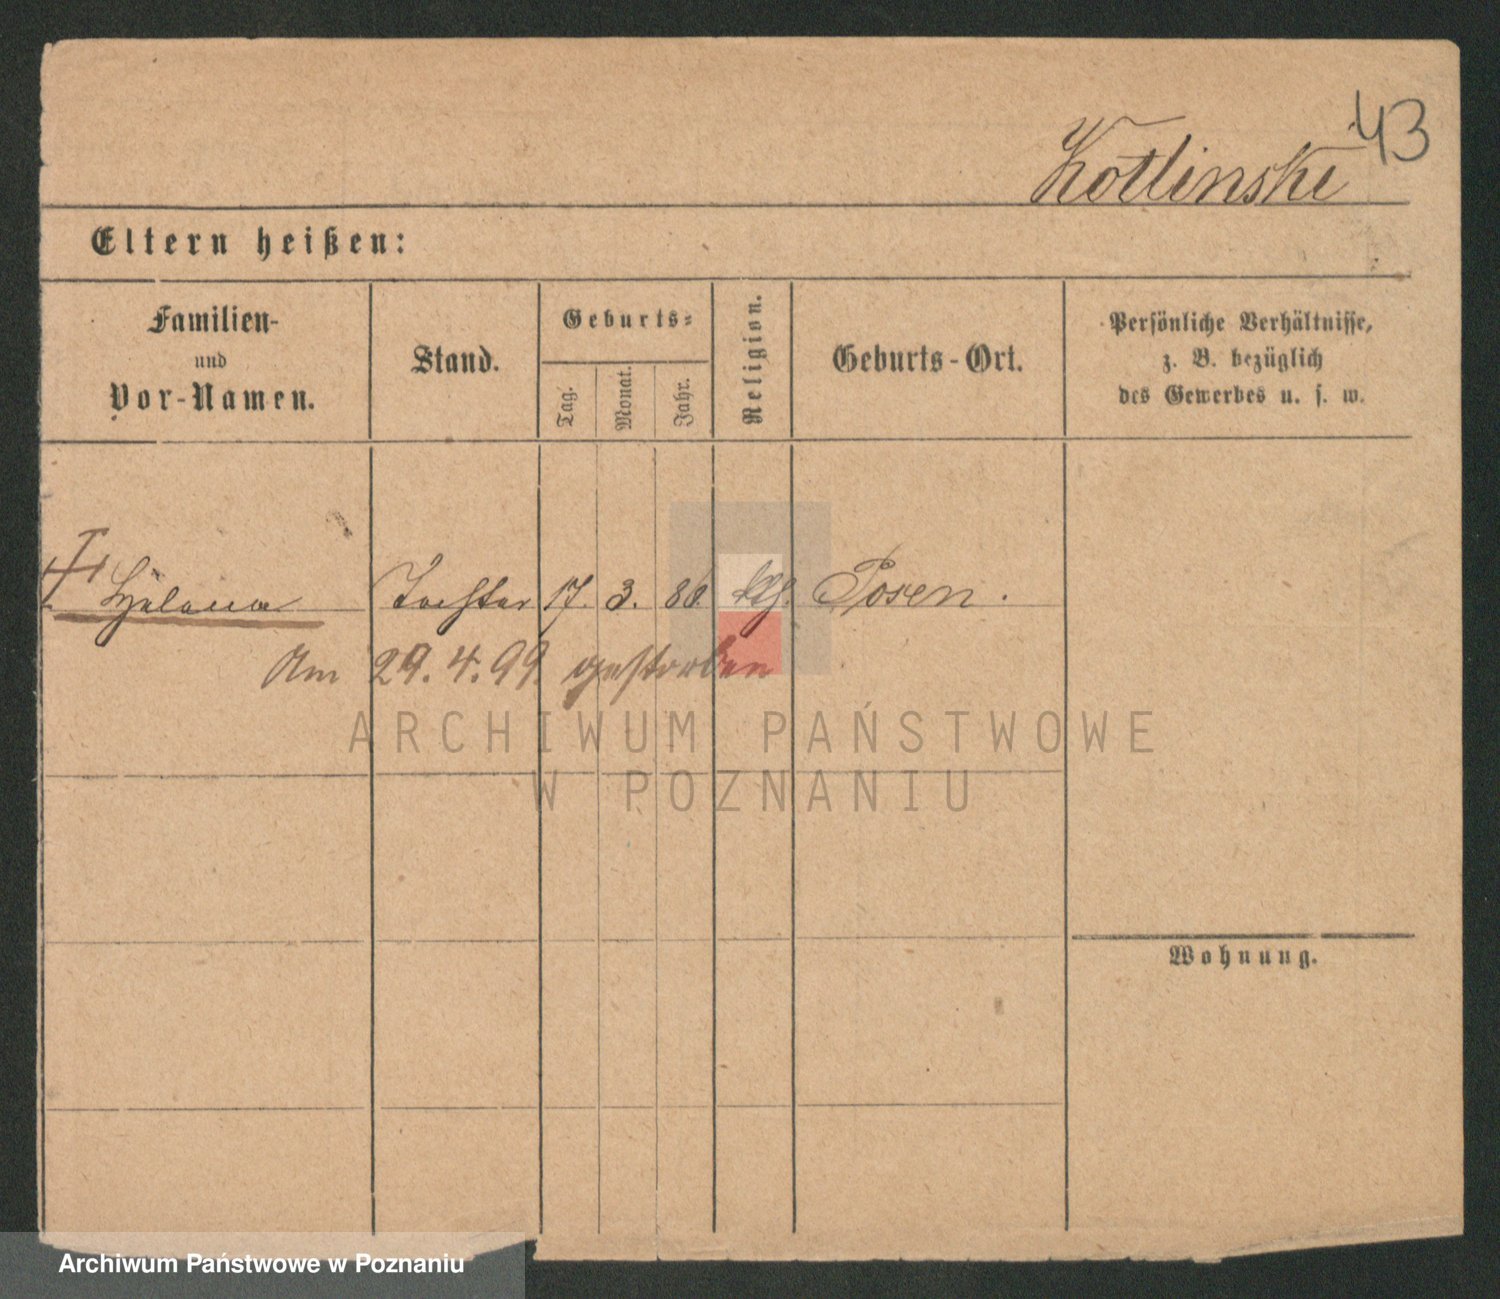 43
Kotlinski
Eltern heißen:
Familien-
und
Vor-Namen.
Stand.
Geburts-
Tag.
Monat.
Jahr.
Religion.
Geburts-Ort.
Persönliche Verhältnisse,
z. B. bezüglich
des Gewerbes u. s. w.
Helena Tochter 17. 3. 80. kth. Posen.
Am 29.4.99. gestorben
ARCHIWUM PAŃSTWOWE
W POZNANIU
Wohnung.
Archiwum Państwowe w Poznaniu